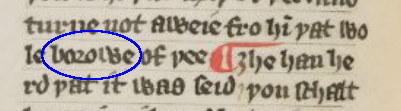 turne not aweie fro hī þat wo
le borowe of þee ¶ ȝhe han he
rd þat it was seid, þou schalt